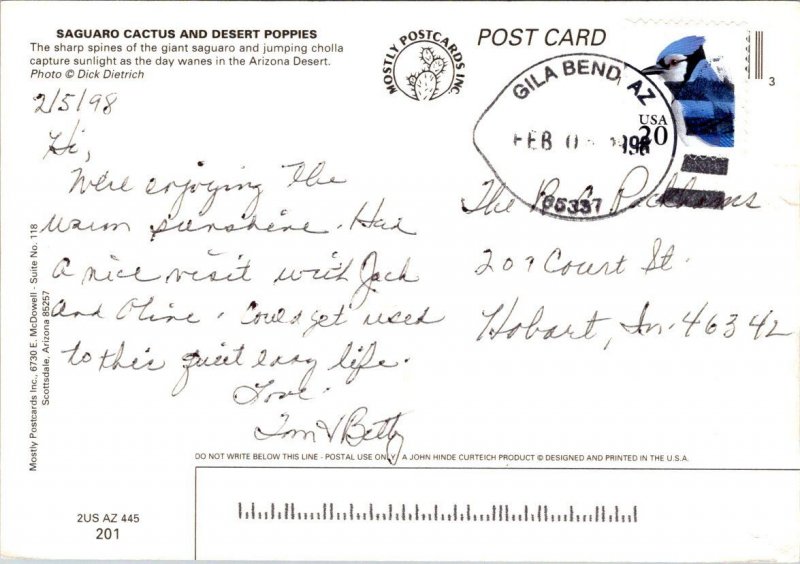 SAGUARO CACTUS AND DESERT POPPIES
The sharp spines of the giant saguaro and jumping cholla
capture sunlight as the day wanes in the Arizona Desert.
Photo © Dick Dietrich
MOSTLY POSTCARDS INC.
POST CARD
GILA BEND, AZ
FEB 0 1998
85337
USA
20
3
2/5/98
Hi,
We're enjoying the
warm sunshine. Had
a nice visit with Jack
and Oline. Could get used
to this quiet easy life.
Love
Tom & Betty
The Peckhams
207 Court St.
Hobart, In. 46342
Mostly Postcards Inc., 6730 E. McDowell - Suite No. 118
Scottsdale, Arizona 85257
DO NOT WRITE BELOW THIS LINE - POSTAL USE ONLY
A JOHN HINDE CURTEICH PRODUCT © DESIGNED AND PRINTED IN THE U.S.A.
2US AZ 445
201